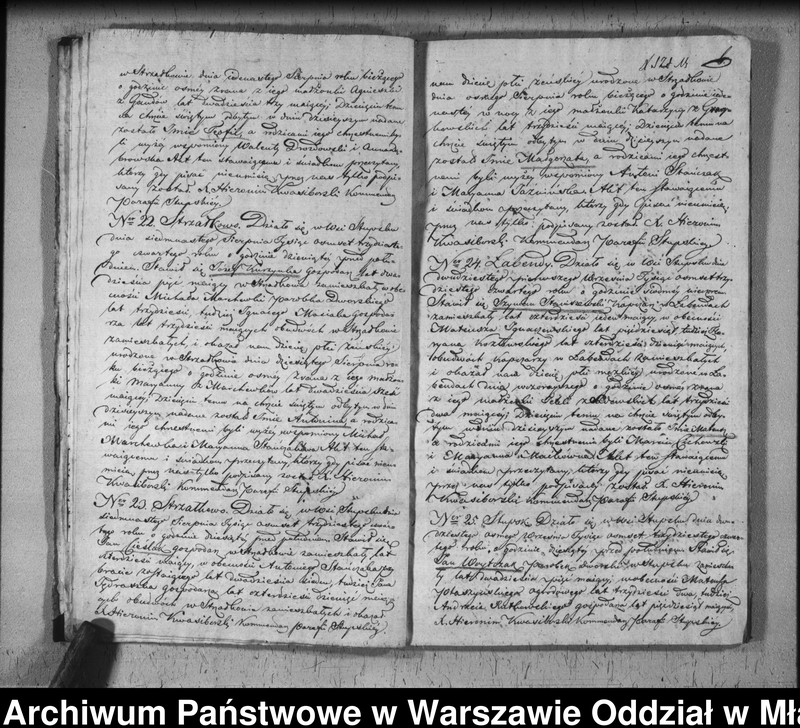 w Strzałkowie dnia jedenastego Sierpnia roku bieżącego
o godzinie osmej zrana z jego małżonki Agnieszki
z lat dwadzieścia trzy mającej Dziecięciu temu
na chrzcie świętym odbytym w dniu dzisiejszym nadane
zostało Imie Teofil, a rodzicami jego chrzestnemi by
li wyżej wspomiony Walenty Drozdowski i Anna
browska Akt ten stawaiącemu i świadkom przeczytany,
którzy gdy pisać nieumieią przez nas tylko podpi
sany został X. Hieronim Kwasiborski Kommendarz
Parafii Stupskiej
No 22. Strzałkowo. Działo się w Wsi Stupsku
dnia siedmnastego Sierpnia Tysiąc osmset trzydzieste
go czwartego roku o godzinie dziesiątej przed połu
dniem. Stawił się gospodarz lat dwa
dzieścia pięć maiący w Strzałkowie zamieszkały w obe
cności Michała Marchwki parobka dworskiego
lat trzydzieści, tudzież Ignacego gospoda
rza lat trzydzieści maiących obudwóch w Strzałkowie
zamieszkałych, i okazał nam dziecię płci żeńskiej
urodzone w Strzałkowie dnia dziesiątego Sierpnia ro
ku bieżącego o godzinie osmej zrana z jego małżon
ki Maryanny z lat dwadzieścia
maiącej. Dziecięciu temu na chrzcie świętym odbytym w dniu
dzisiejszym nadane zostało Imie Antonina, a rodzica
mi jego chrzestnemi byli wyżej wspomiony Michał
Marchewka i Maryanna Akt ten sta
waiącemu i świadkom przeczytany, którzy gdy pisać nieu
mieią, przez nas tylko podpisany został X. Hieronim
Kwasiborski Kommendarz Parafii Stupskiej
No 23. Strzałkowo. Działo się w Wsi Stupsku dnia
siedmnastego Sierpnia Tysiąc osmset trzydziestego czwar
tego roku o godzinie dziesiątej przed południem Stawił się
Jan Cieślak gospodarz w Strzałkowie zamieszkały lat
czterdzieści maiący, w obecności Antoniego Stańczaka
lat dwadzieścia siedm, tudzież Jana
gospodarza lat czterdzieści dziewięć maią
cych obudwóch w Strzałkowie zamieszkałych i okazał
X. Hieronim Kwasiborski Kommendarz Parafii Stupskiej
6
nam dziecię płci żeńskiej urodzone w Strzałkowie
dnia osmego Sierpnia roku bieżącego o godzinie jede
nastej w nocy z jego małżonki Katarzyny z
lat trzydzieści maiącej. Dziecięciu temu na
chrzcie świętym odbytym w dniu dzisiejszym nadane
zostało Imie Małgorzata, a rodzicami jego chrzest
nemi byli wyżej wspomiony Antoni Stańczak
i Maryanna Akt ten stawaiącemu
i świadkom przeczytany, którzy gdy pisać nieumieią
przez nas tylko podpisany został X. Hieronim
Kwasiborski Kommendarz Parafii Stupskiej
No 24. Łabendy. Działo się w Wsi Stupsku dnia
dwudziestego pierwszego Września Tysiąc osmset trzy
dziestego czwartego roku o godzinie siódmej wieczorem
Stawił się Szymon Staniszewski w Łabendach
zamieszkały lat czterdzieści jeden maiący w obecności
Mateusza Ignaczewskiego lat pięćdziesiąt tudzież Ma
ryana Kozłowskiego lat czterdzieści dziewięć maiących
obudwóch w Łabendach zamieszkałych
i okazał nam dziecię płci męzkiej urodzone w Ła
bendach dnia wczorajszego o godzinie osmej zrana
z jego małżonki z lat trzydzieści
dwa maiącej Dziecięciu temu na chrzcie świętym odby
tym w dniu dzisiejszym nadane zostało Imie Mateusz,
a rodzicami jego chrzestnemi byli Marcin
i Maryanna Akt ten stawaiącemu
i świadkom przeczytany, którzy gdy pisać nieumieią
przez nas tylko podpisany został X. Hieronim
Kwasiborski Kommendarz Parafii Stupskiej
No 25. Stupsk. Działo się w Wsi Stupsku dnia dwu
dziestego osmego Września Tysiąc osmset trzydziestego czwar
tego roku, o godzinie dziesiątej przed południem Stawił się
Jan parobek dworski w Stupsku zamieszka
ły lat dwadzieścia pięć maiący w obecności Mateusza
lat trzydzieści dwa, tudzież
Andrzeia Rutkowskiego gospodarza lat pięćdziesiąt maiących
X. Hieronim Kwasiborski Kommendarz Parafii Stupskiej
Archiwum Państwowe w Warszawie Oddział w Mła